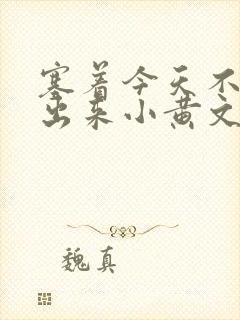 塞着今天不
出来小黄文
魏真